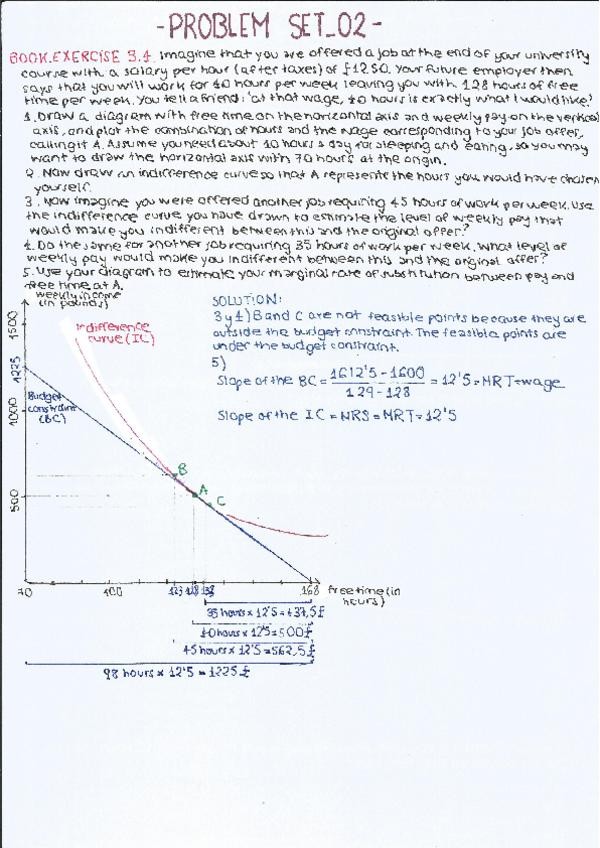 -PROBLEM SET_02-
BOOK.EXERCISE 3.4. Imagine that you are offered a job at the end of your university
course with a salary per hour (after taxes) of £12.50. Your future employer then
says that you will work for 40 hours per week leaving you with 128 hours of free
time per week. You tell a friend: 'at that wage, 40 hours is exactly what I would like.'
1. Draw a diagram with free time on the horizontal axis and weekly pay on the vertical
axis, and plot the combination of hours and the wage corresponding to your job offer,
calling it A. Assume you need about 10 hours a day for sleeping and eating, so you may
want to draw the horizontal axis with 70 hours at the origin.
2. Now draw an indifference curve so that A represents the hours you would have chosen
yourself.
3. Now imagine you were offered another job requiring 45 hours of work per week. Use
the indifference curve you have drawn to estimate the level of weekly pay that
would make you indifferent between this and the original offer?
4. Do the same for another job requiring 35 hours of work per week. What level of
weekly pay would make you indifferent between this and the original offer?
5. Use your diagram to estimate your marginal rate of substitution between pay and
free time at A.
weekly income
(in pounds)
SOLUTION:
3 y 4) B and C are not feasible points because they are
outside the budget constraint. The feasible points are
under the budget constraint.
5)
Slope of the BC = 1612'5 - 1600 / 129 - 128 = 12'5 = MRT = wage
Slope of the IC = MRS = MRT = 12'5
1500
Indifference
curve (IC)
1225
Budget
constraint
(BC)
1000
B
A
C
500
70
100
123
128
133
168
free time (in
hours)
35 hours x 12'5 = 437,5 £
40 hours x 12'5 = 500 £
45 hours x 12'5 = 562,5 £
98 hours x 12'5 = 1225 £